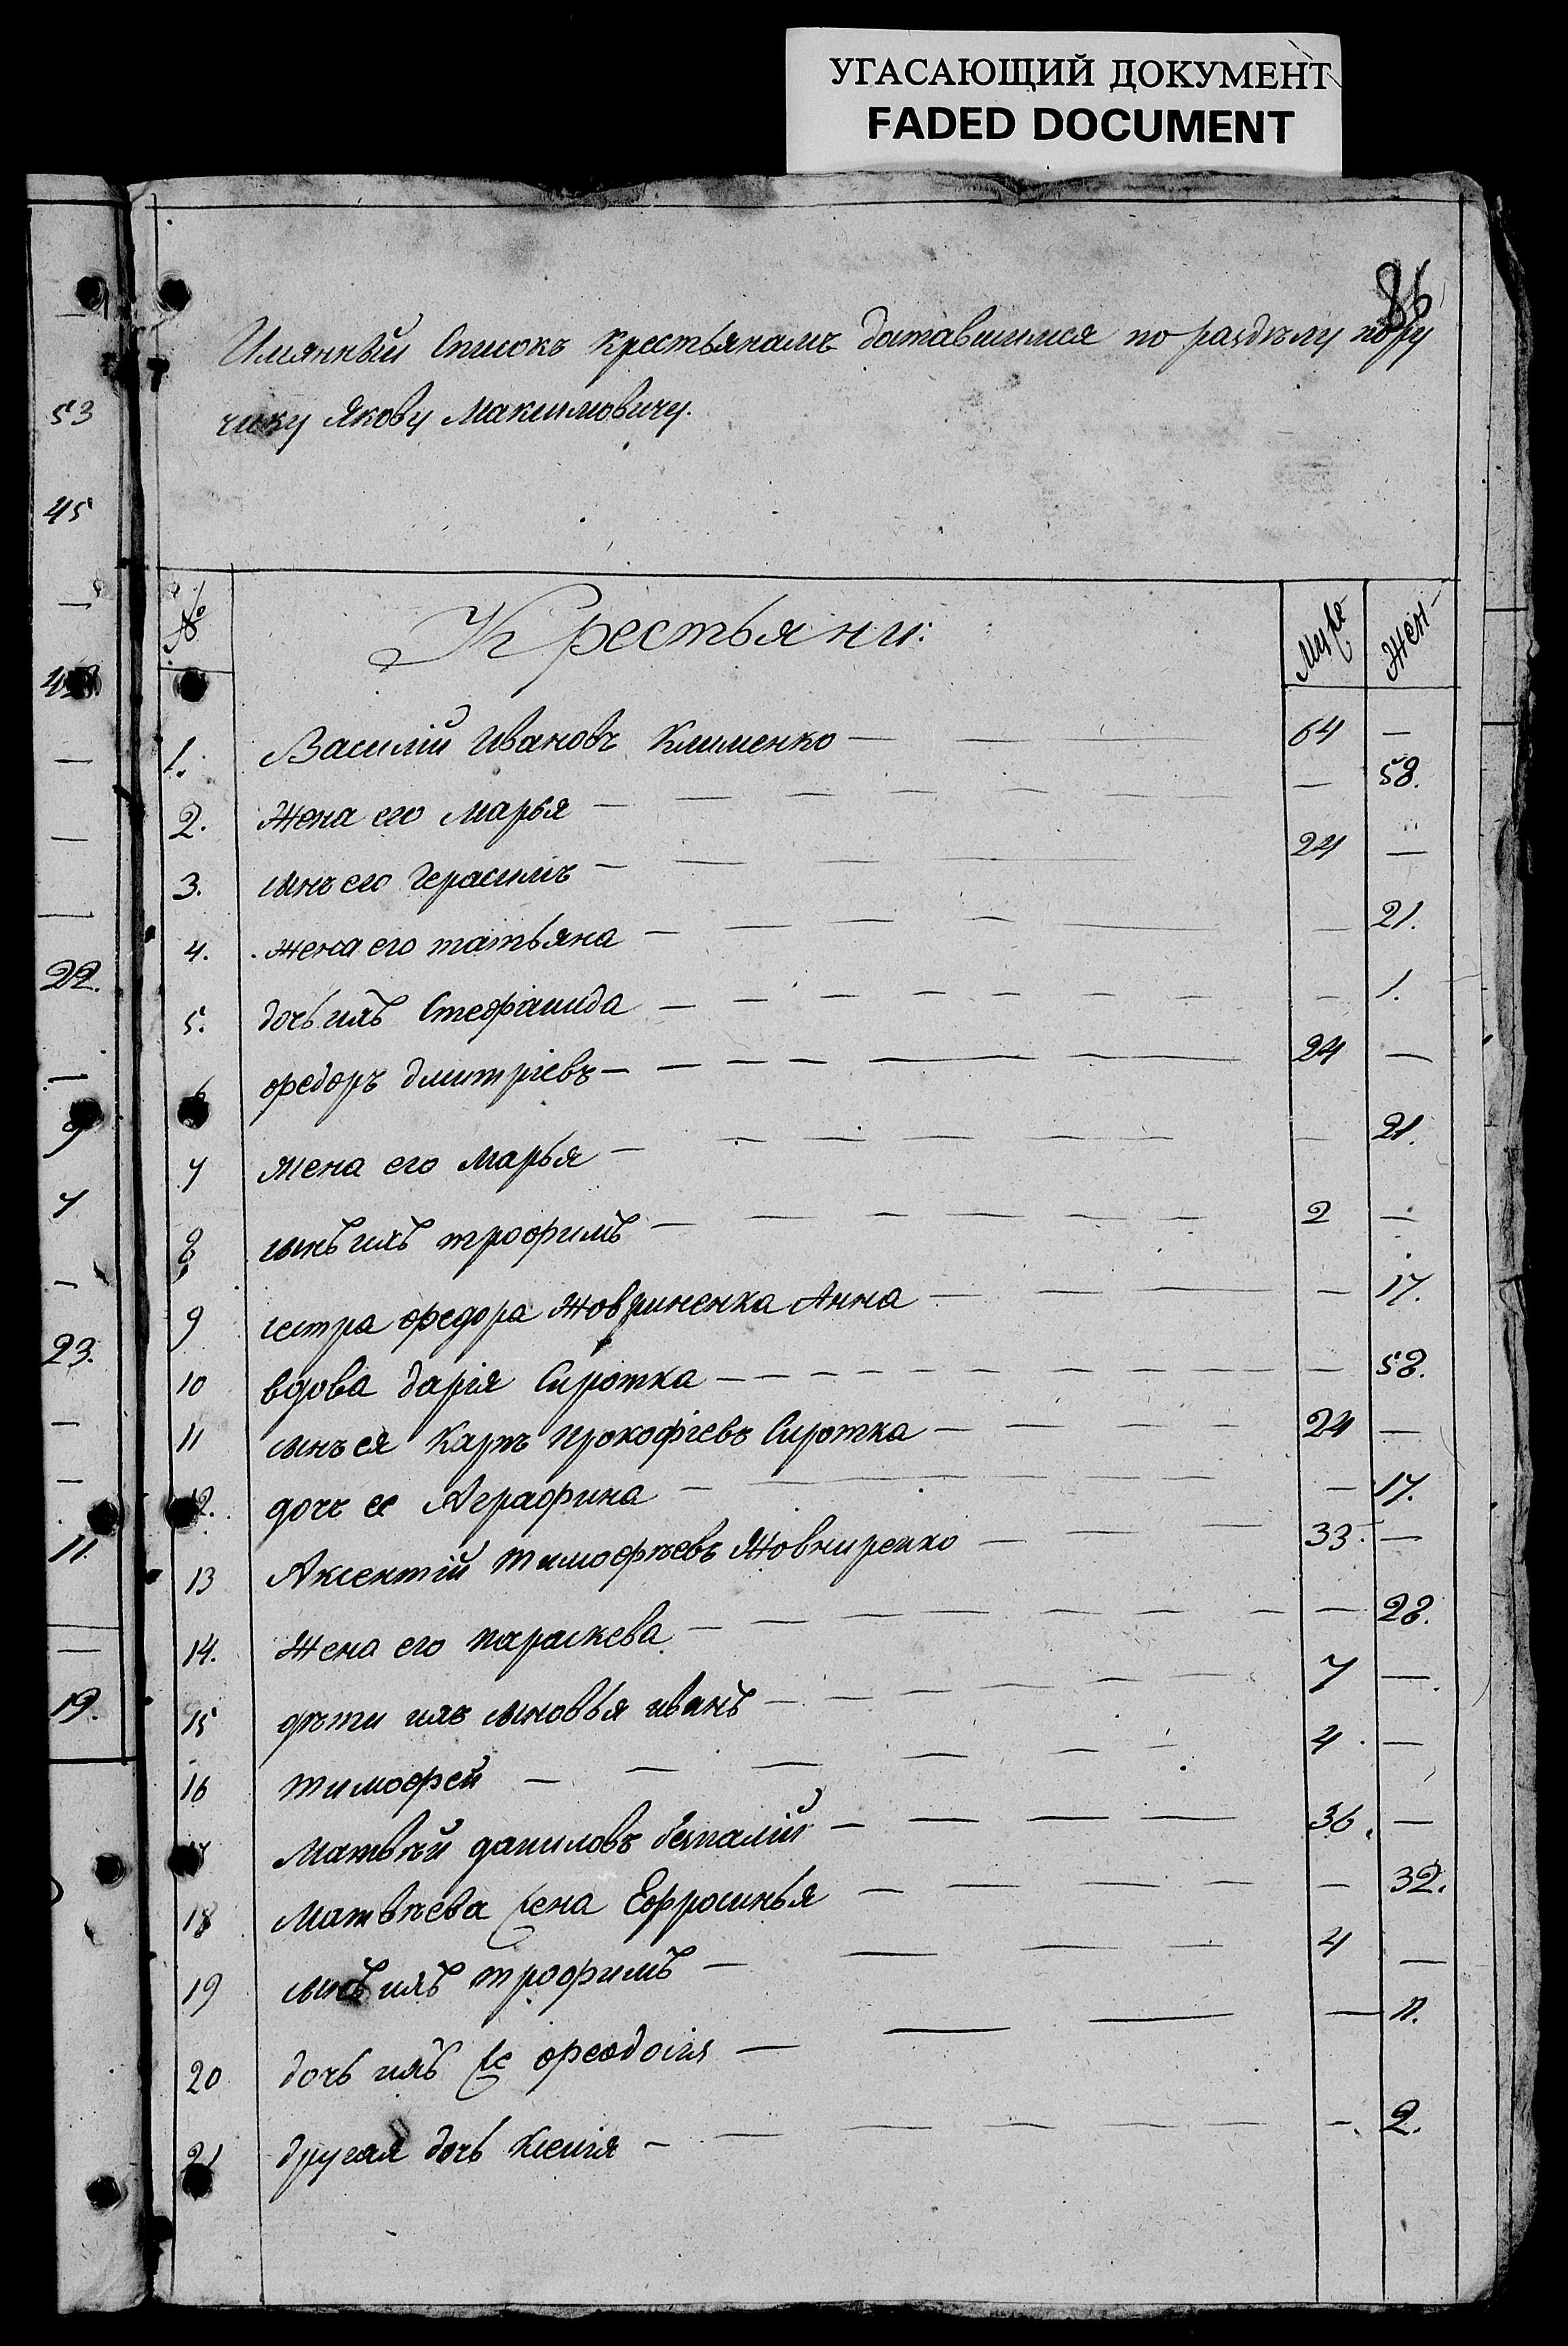 УГАСАЮЩИЙ ДОКУМЕНТ
FADED DOCUMENT
86
Имянный Списокъ Крестьянамъ доставшимся по раздѣлу пору
чику Якову Максимовичу.
53
45
22.
9
7
23.
11.
19.
№ Крестьяни: Муже Жен-
1. Василій Ивановъ Клименко — 64 —
2. Жена его Марья — — 58.
3. сынъ его Герасимъ — 24 —
4. жена его татьяна — — 21.
5. дочь ихъ Стефанида — — 1.
6 Федоръ дмитріевъ — 24 —
7 жена его Марья — — 21.
8 сынъ ихъ трофимъ — 2 —
9 сестра Федора Анна — — 17.
10 вдова дарія Сиротка — — 58.
11 сынъ ея Карпъ Прокофіевъ Сиротка — 24 —
12. дочь ее Аграфина — — 17.
13 Аксентій Тимофѣевъ Жовниренко — 33. —
14. Жена его параскева — — 28.
15 дѣти ихъ сыновья иванъ — 7 —
16 тимофей — 4 —
17 Матвѣй даниловъ безпалій — 36. —
18 Матвѣева жена Ефросинья — — 32.
19 сынъ ихъ трофимъ — 4 —
20 дочь ихъ феодосія — — 11.
21 другая дочь Ксенія — — 2.